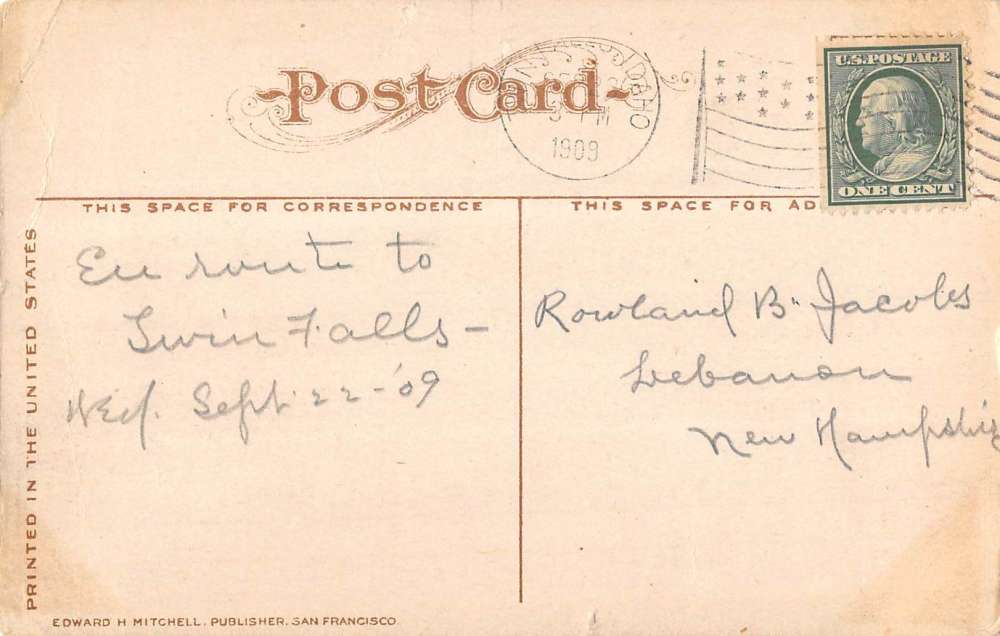 Post Card
IDAHO
PM
1909
U.S. POSTAGE
ONE CENT
THIS SPACE FOR CORRESPONDENCE
THIS SPACE FOR AD
PRINTED IN THE UNITED STATES
En route to
Twin Falls –
Wed. Sept. 22 - '09
Rowland B. Jacobs
Lebanon
New Hampshir
EDWARD H MITCHELL. PUBLISHER. SAN FRANCISCO